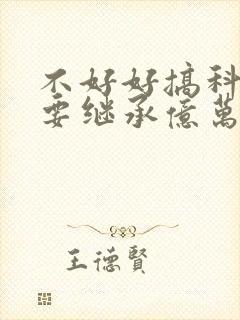 不好好搞科
要继承億萬
王德賢